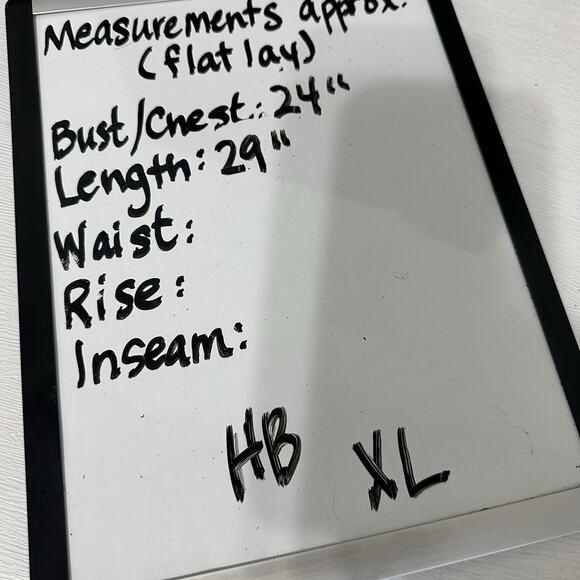 Measurements approx.
(flat lay)
Bust/Chest: 24"
Length: 29"
Waist:
Rise:
Inseam:
HB XL